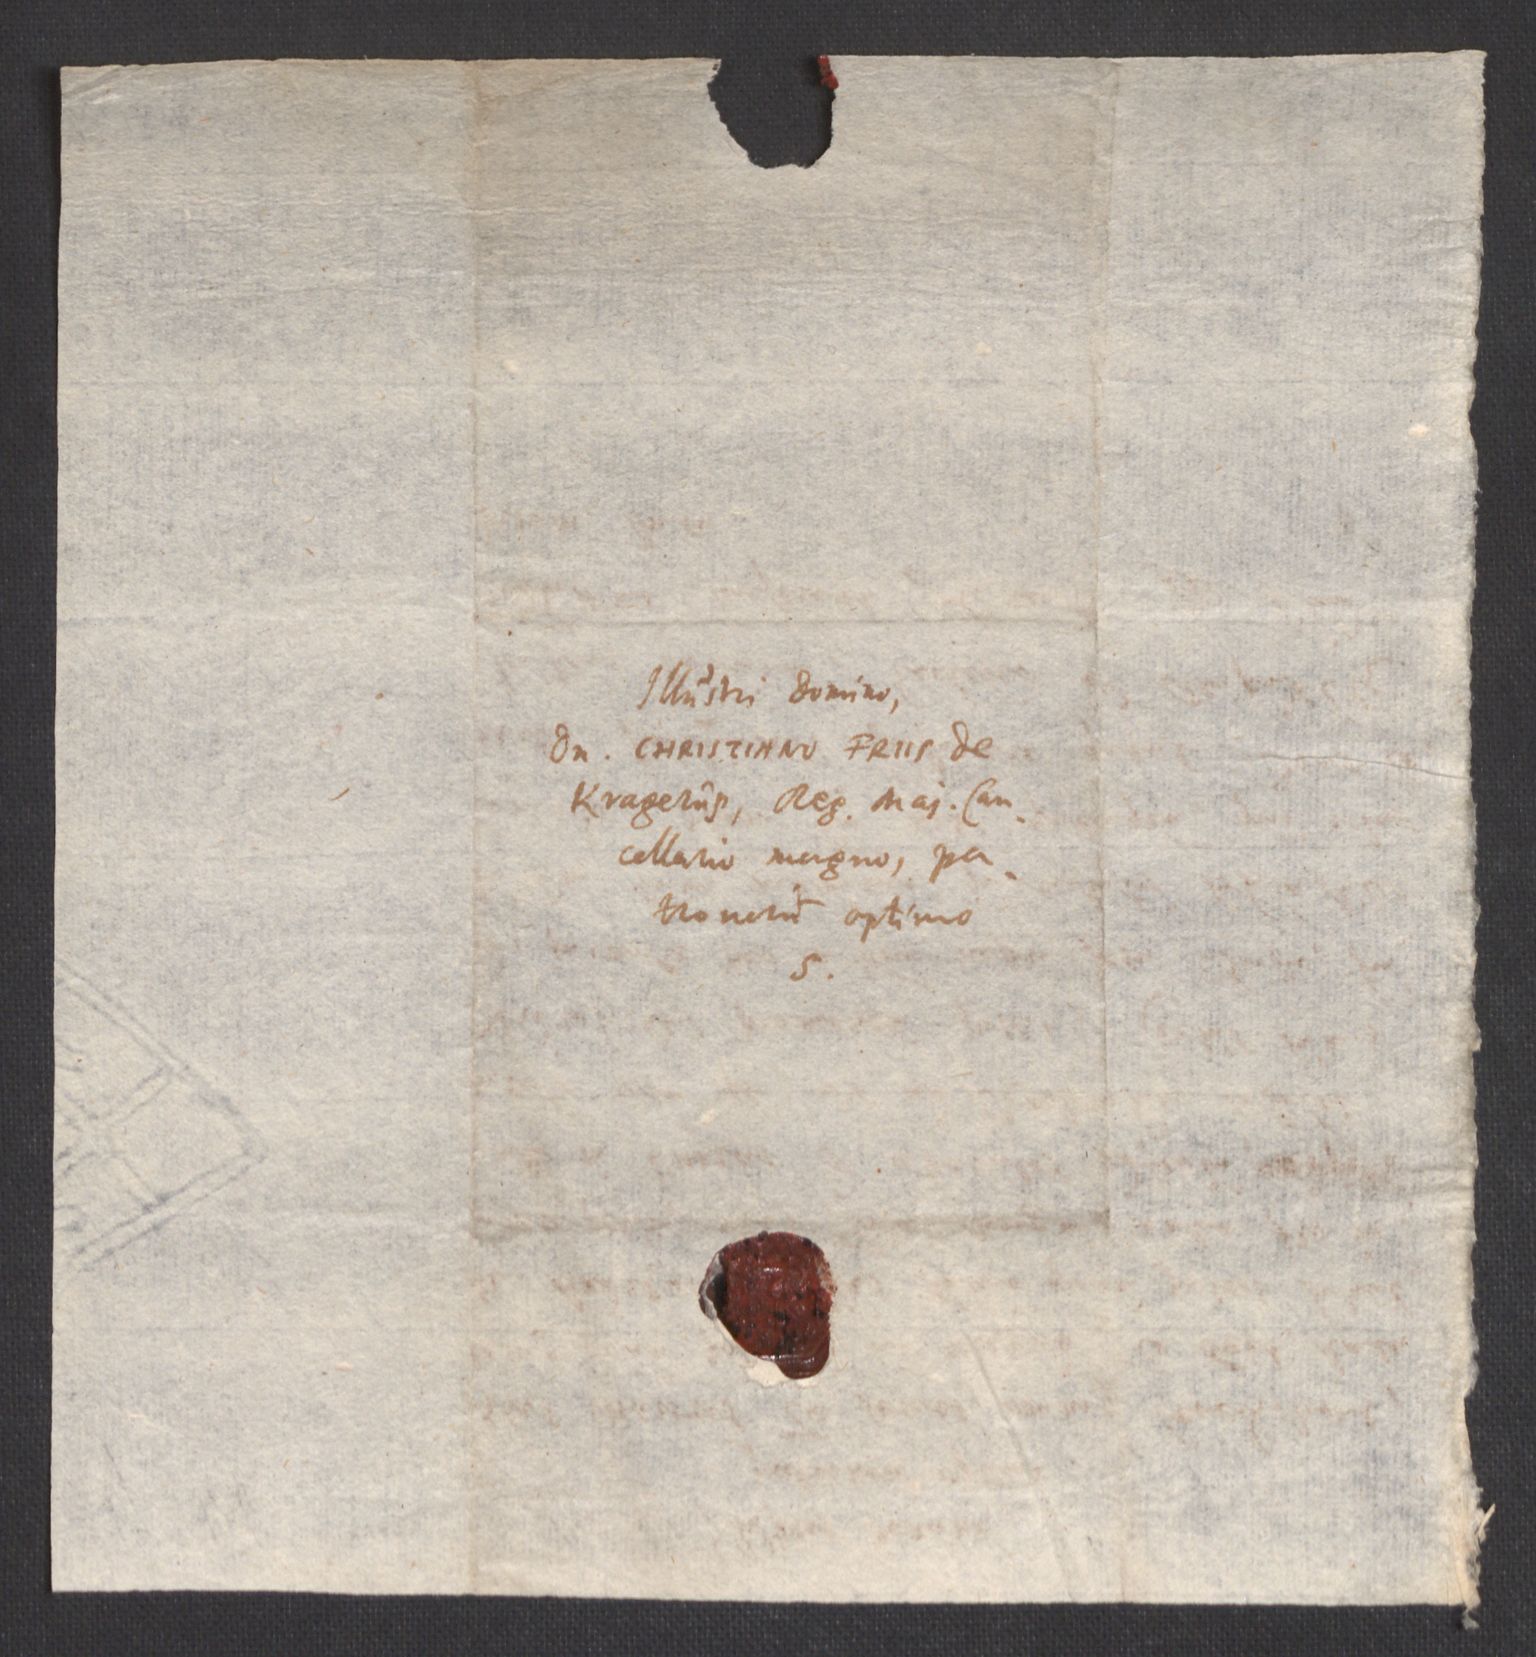 Illustri Domino,
Dn. CHRISTIANO FRIIS de
Kragerup, Reg. Maj. Can-
cellario magno, pa-
optimo
S.